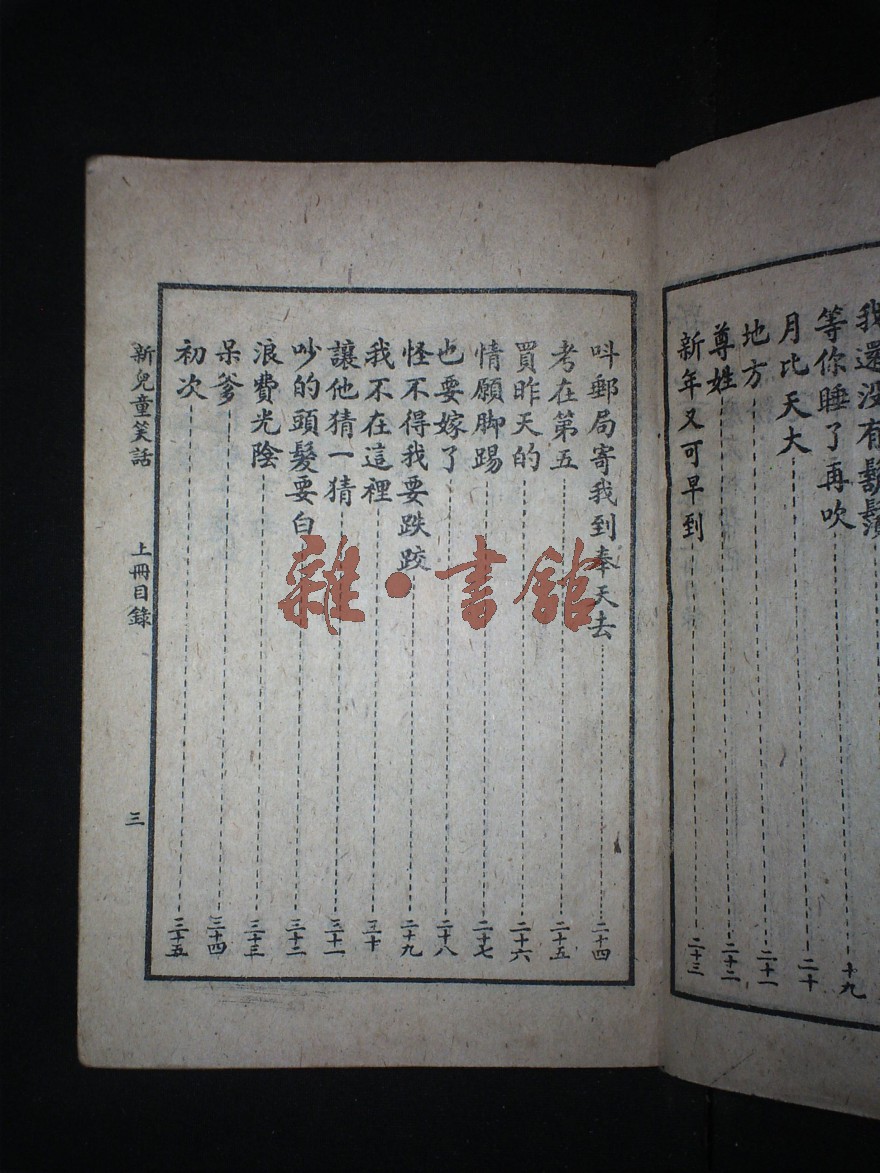 我還没有鬍鬚
等你睡了再吹 十九
月比天大 二十
地方 二十一
尊姓 二十二
新年又可早到 二十三
呌郵局寄我到奉天去 二十四
考在第五 二十五
買昨天的 二十六
情願脚踢 二十七
也要嫁了 二十八
怪不得我要跌跤 二十九
我不在這裡 三十
讓他猜一猜 三十一
吵的頭髮要白 三十二
浪費光陰 三十三
呆爹 三十四
初次 三十五
新兒童笑話 上冊目錄 三
雜·書館